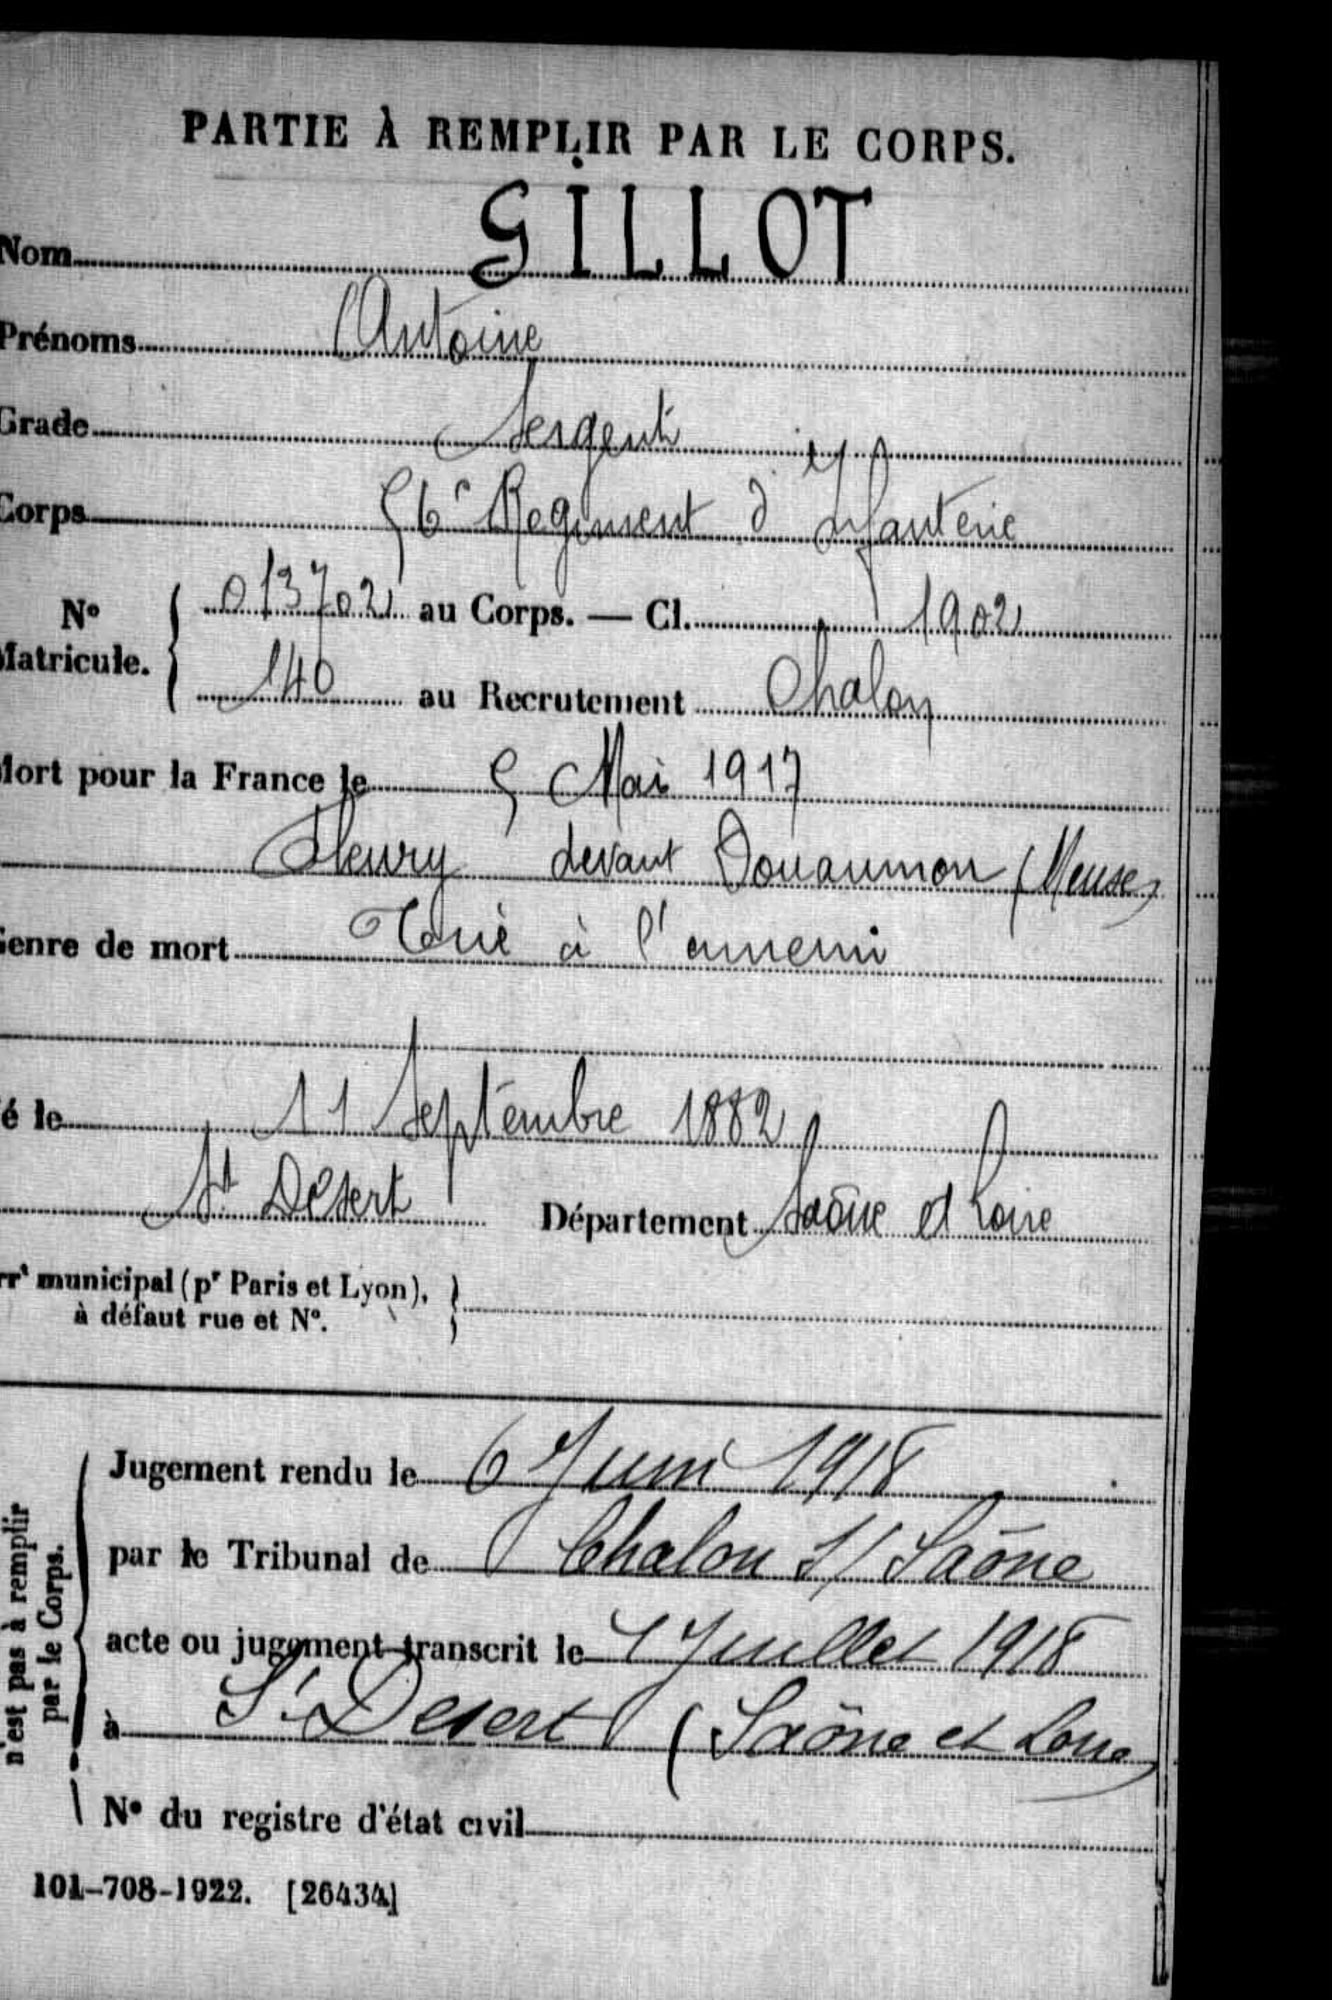 PARTIE À REMPLIR PAR LE CORPS.
Nom GILLOT
Prénoms Antoine
Grade Sergent
Corps 56e Régiment d'Infanterie
No Matricule. 013702 au Corps. — Cl. 1902
140 au Recrutement Chalon
Mort pour la France le 5 Mai 1917
Fleury devant Douaumon (Meuse)
Genre de mort Tué à l'ennemi
é le 11 Septembre 1882
St Désert Département Saône et Loire
rrt municipal (pr Paris et Lyon),
à défaut rue et No.
n'est pas à remplir
par le Corps.
Jugement rendu le 6 Juin 1918
par le Tribunal de Chalon s/ Saône
acte ou jugement transcrit le 1 Juillet 1918
à St Desert (Saône et Loire)
No du registre d'état civil
101-708-1922. [26434]